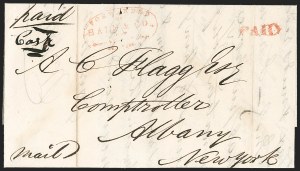 paid
Cash
PAID
A C Flagg Esq
Comptroller
Albany
New York
mail